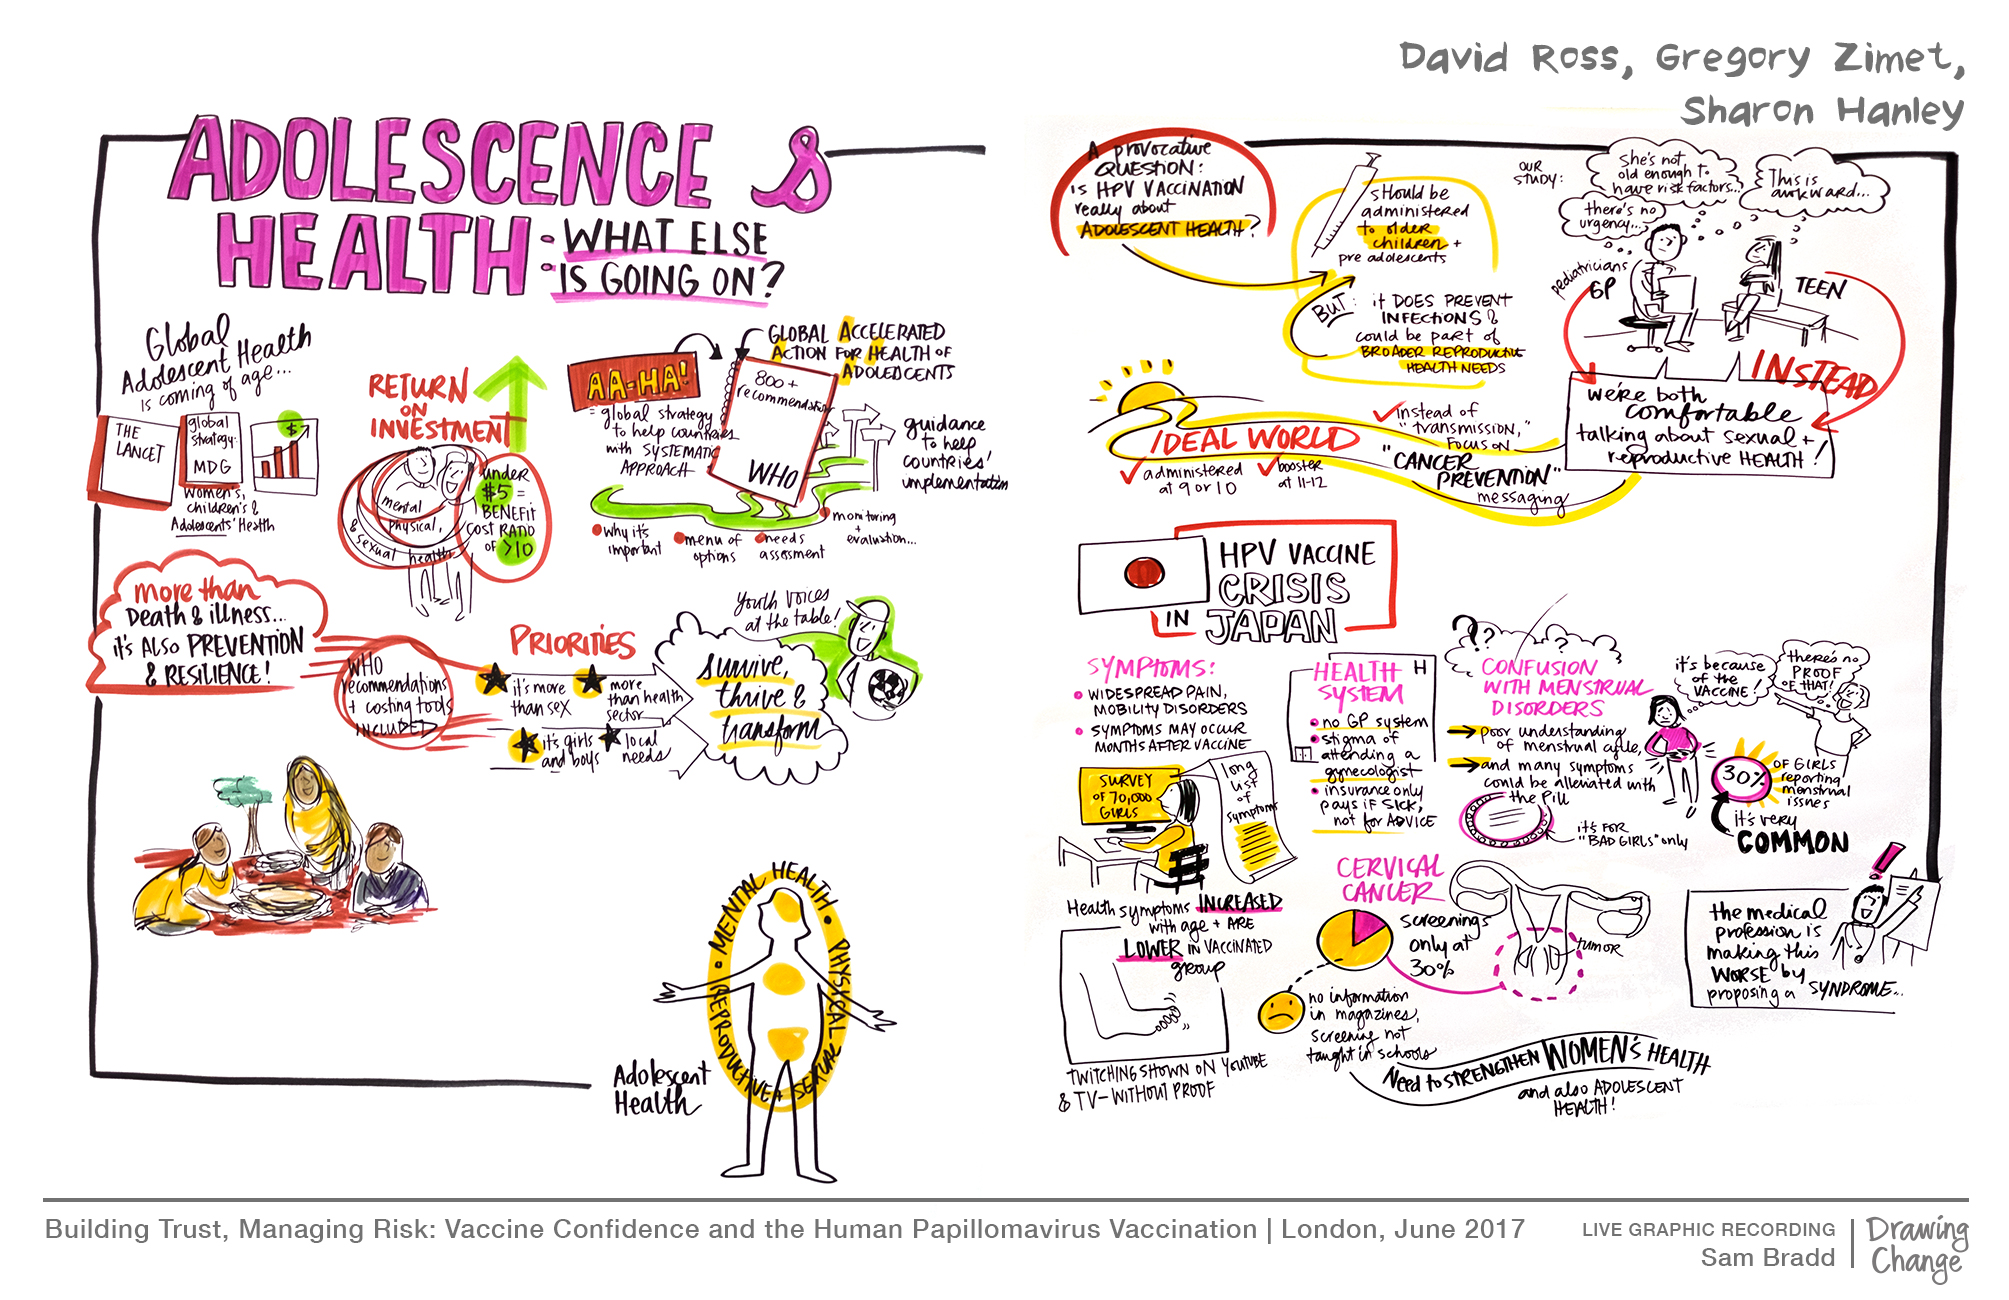 David Ross, Gregory Zimet,
Sharon Hanley
ADOLESCENCE &
HEALTH:
WHAT ELSE
IS GOING ON?
Global
Adolescent Health
is coming of age...
THE
LANCET
global
strategy:
MDG
$
Women's,
children's &
Adolescents' Health
RETURN
ON
INVESTMENT
mental
physical,
& sexual health
under
$5 =
BENEFIT
COST RATIO
OF >10
AA-HA!
= global strategy
to help countries
with SYSTEMATIC
APPROACH
800+
recommendations
WHO
GLOBAL ACCELERATED
ACTION FOR HEALTH OF
ADOLESCENTS
guidance
to help
countries'
implementation
why it's
important
menu of
options
needs
assessment
monitoring
+
evaluation...
more than
Death & illness...
it's ALSO PREVENTION
& RESILIENCE!
WHO
recommendations
+ costing tools
INCLUDED
PRIORITIES
it's more
than sex
more
than health
sector
it's girls
and boys
local
needs
survive,
thrive &
transform
youth voices
at the table!
Adolescent
Health
MENTAL HEALTH • PHYSICAL
SEXUAL + REPRODUCTIVE •
A provocative
QUESTION:
is HPV VACCINATION
really about
ADOLESCENT HEALTH?
should be
administered
to older
children +
pre adolescents
BUT:
it DOES PREVENT
INFECTIONS &
could be part of
BROADER REPRODUCTIVE
HEALTH NEEDS
OUR
STUDY:
She's not
old enough to
have risk factors...
This is
awkward...
there's no
urgency...
pediatricians
GP
TEEN
INSTEAD
we're both
comfortable
talking about sexual +
reproductive HEALTH!
IDEAL WORLD
administered
at 9 or 10
booster
at 11-12
instead of
"transmission,"
FOCUS ON
"CANCER
PREVENTION"
messaging
HPV VACCINE
CRISIS
IN JAPAN
SYMPTOMS:
WIDESPREAD PAIN,
MOBILITY DISORDERS
SYMPTOMS MAY OCCUR
MONTHS AFTER VACCINE
SURVEY
OF 70,000
GIRLS
long
list
of
symptoms
Health symptoms INCREASED
with age + ARE
LOWER IN VACCINATED
group
TWITCHING SHOWN ON YOUTUBE
& TV-WITHOUT PROOF
HEALTH H
SYSTEM
no GP system
stigma of
attending a
gynecologist
insurance only
pays if SICK,
not for ADVICE
?? ?
CONFUSION
WITH MENSTRUAL
DISORDERS
poor understanding
of menstrual cycle,
and many symptoms
could be alleviated with
the Pill
it's FOR
"BAD GIRLS" only
it's because
of the
VACCINE!
there's no
PROOF
OF THAT!
30%
OF GIRLS
reporting
menstrual
issues
it's very
COMMON
CERVICAL
CANCER
screenings
only at
30%
tumor
no information
in magazines,
screening not
taught in schools
the medical
profession is
making this
WORSE by
proposing a SYNDROME...
!
Need to STRENGTHEN WOMEN'S HEALTH
and also ADOLESCENT
HEALTH!
Building Trust, Managing Risk: Vaccine Confidence and the Human Papillomavirus Vaccination | London, June 2017
LIVE GRAPHIC RECORDING
Sam Bradd
Drawing
Change